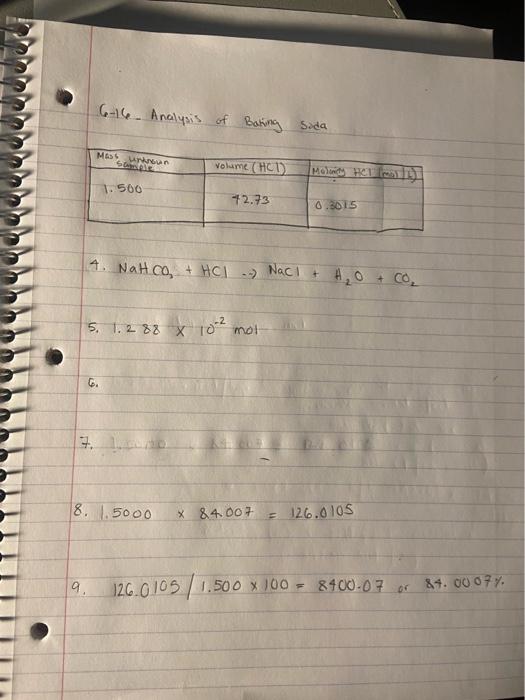 6-16 - Analysis of Baking Soda
Mass unknown sample | volume (HCl) | Molarity HCl (mol/L)
1.500 | 42.73 | 0.3015
4. NaHCO3 + HCl -> NaCl + H2O + CO2
5. 1.288 x 10^-2 mol
6.
7.
8. 1.5000 x 84.007 = 126.0105
9. 126.0105 / 1.500 x 100 = 8400.07 or 84.0007%